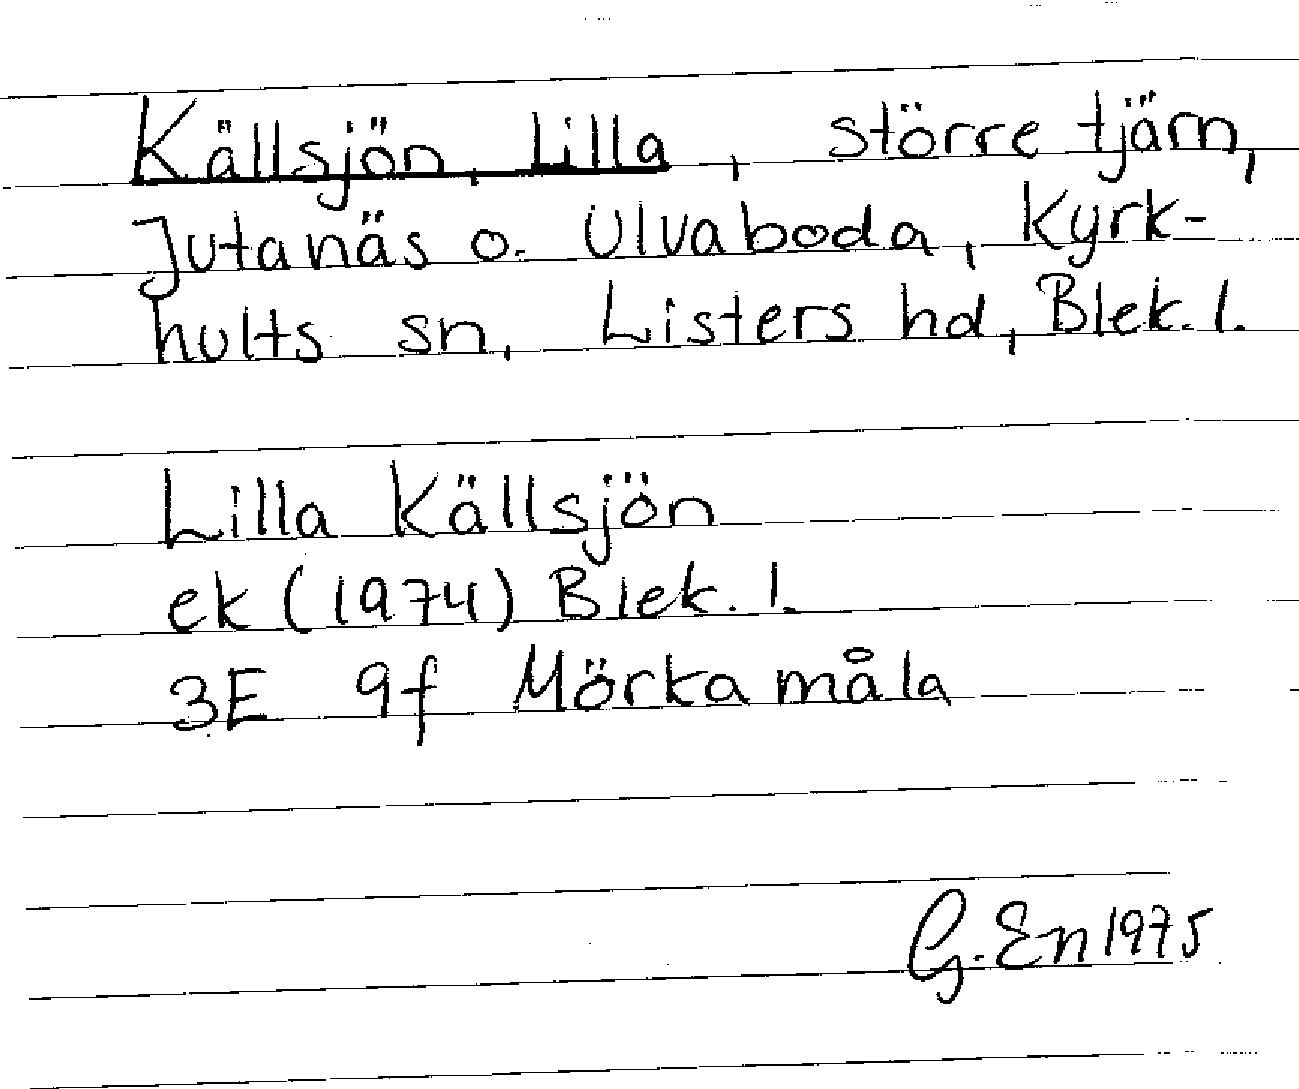 Källsjön, Lilla, större tjärn,
Jutanäs o. Ulvaboda, Kyrk-
hults sn, Listers hd, Blek. l.
Lilla Källsjön
ek (1974) Blek. l.
3E 9f Mörkamåla
G. En 1975